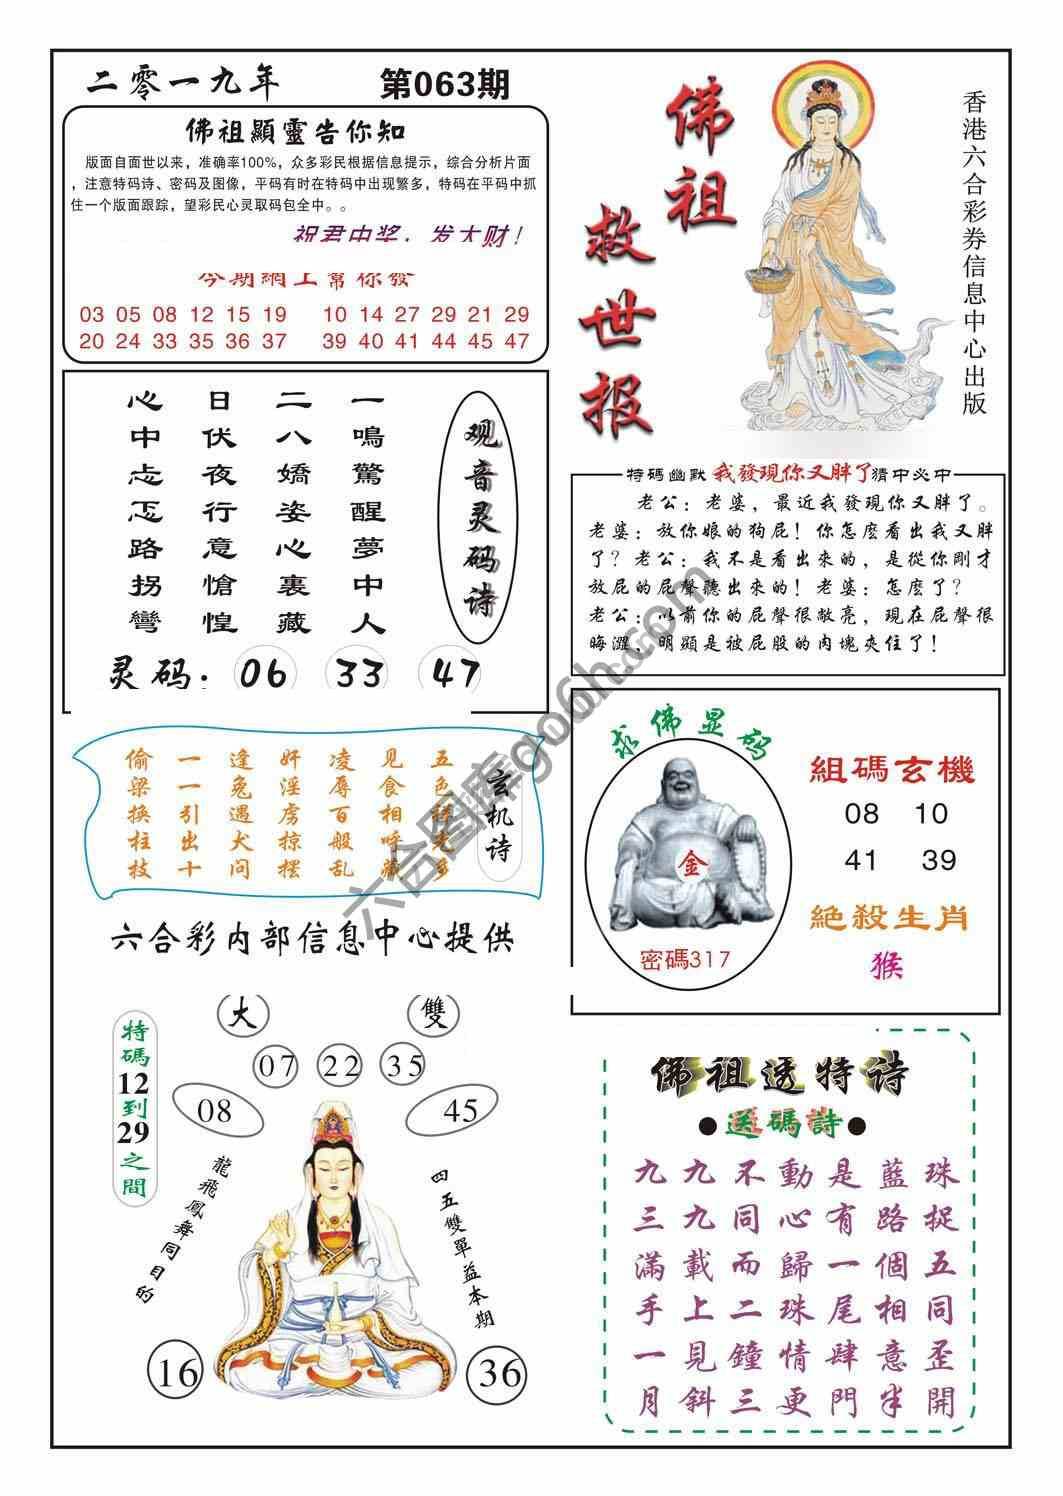 二零一九年 第063期
佛祖顯靈告你知
版面自面世以来，准确率100%，众多彩民根据信息提示，综合分析片面
，注意特码诗、密码及图像，平码有时在特码中出现繁多，特码在平码中抓
住一个版面跟踪，望彩民心灵取码包全中。。
祝君中奖，发大财！
今期網上幫你發
03 05 08 12 15 19 10 14 27 29 21 29
20 24 33 35 36 37 39 40 41 44 45 47
佛祖
救世报
香港六合彩券信息中心出版
观音灵码诗
一鳴驚醒夢中人
二八嬌姿心裏藏
日伏夜行意愴惶
心中忐忑路拐彎
灵码：06 33 47
特碼幽默 我發現你又胖了 猜中必中
老公：老婆，最近我發現你又胖了。
老婆：放你娘的狗屁！你怎麽看出我又胖
了？老公：我不是看出來的，是從你剛才
放屁的屁聲聽出來的！老婆：怎麽了？
老公：以前你的屁聲很敞亮，現在屁聲很
晦澀，明顯是被屁股的肉塊夾住了！
玄机诗
五色祥光多
见食相呼常
凌辱百般乱
奸淫虏掠摆
逢兔遇犬问
一一引出十
偷梁换柱枝
求佛显码
金
密碼317
組碼玄機
08 10
41 39
絕殺生肖
猴
六合彩内部信息中心提供
大 雙
07 22 35
08 45
特碼12到29之間
龍飛鳳舞同目的
四五雙單益本期
16 36
佛祖透特诗
●送碼詩●
九九不動是藍珠
三九同心有路捉
滿載而歸一個五
手上二珠尾相同
一見鐘情肆意歪
月斜三更門半開
六合图库go66h.com